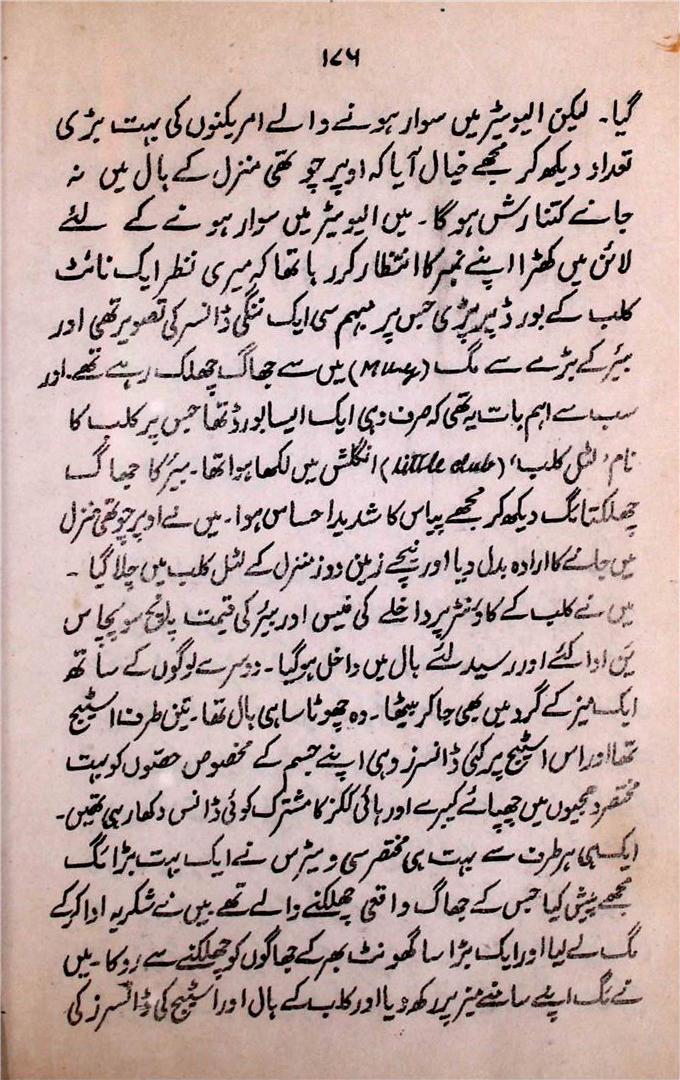 ۱۷۶
گیا۔ لیکن الیویٹر میں سوار ہونے والے امریکنوں کی بہت بڑی
تعداد دیکھ کر مجھے خیال آیا کہ اوپر چوتھی منزل کے ہال میں نہ
جانے کتنا رش ہوگا۔ میں الیویٹر میں سوار ہونے کے لئے
لائن میں کھڑا اپنے نمبر کا انتظار کر رہا تھا کہ میری نظر ایک نائٹ
کلب کے بورڈ پر پڑی جس پر مبہم سی ایک ننگی ڈانسر کی تصویر تھی اور
بیئر کے بڑے سے مگ (Mug) میں سے جھاگ چھلک رہے تھے۔ اور
سب سے اہم بات یہ تھی کہ صرف وہی ایک ایسا بورڈ تھا جس پر کلب کا
نام 'لٹل کلب' (little club) انگلش میں لکھا ہوا تھا۔ بیئر کا جھاگ
چھلکتا مگ دیکھ کر مجھے پیاس کا شدید احساس ہوا۔ میں نے اوپر چوتھی منزل
میں جانے کا ارادہ بدل دیا اور نیچے زمین دوز منزل کے لٹل کلب میں چلا گیا ۔
میں نے کلب کے کاؤنٹر پر داخلے کی فیس اور بیئر کی قیمت پانچ سو پچاس
ین ادا کئے اور رسید لئے ہال میں داخل ہوگیا۔ دوسرے لوگوں کے ساتھ
ایک میز کے گرد میں بھی جا کر بیٹھا۔ وہ چھوٹا سا ہی ہال تھا۔ تین طرف اسٹیج
تھا اور اس اسٹیج پر کئی ڈانسرز وہی اپنے جسم کے مخصوص حصّوں کو بہت
مختصر دھجیوں میں چھپائے کیبرے اور ہائی ککز کا مشترک کوئی ڈانس دکھا رہی تھیں۔
ایک ہی ہر طرف سے بہت ہی مختصر سی ویٹرس نے ایک بہت بڑا مگ
مجھے پیش کیا جس کے جھاگ واقعی چھلکنے والے تھے میں نے شکریہ ادا کرکے
مگ لے لیا اور ایک بڑا سا گھونٹ بھر کے جھاگوں کو چھلکنے سے روکا۔ میں
نے مگ اپنے سامنے میز پر رکھ دیا اور کلب کے ہال اور اسٹیج کی ڈانسرز کی